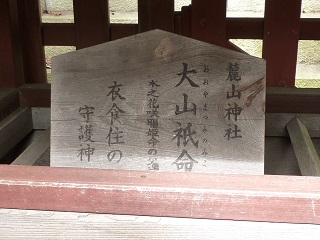 麓山神社
おおやまつみのみこ
大山祇命
木之花咲耶姫命の父
衣食住の
守護神